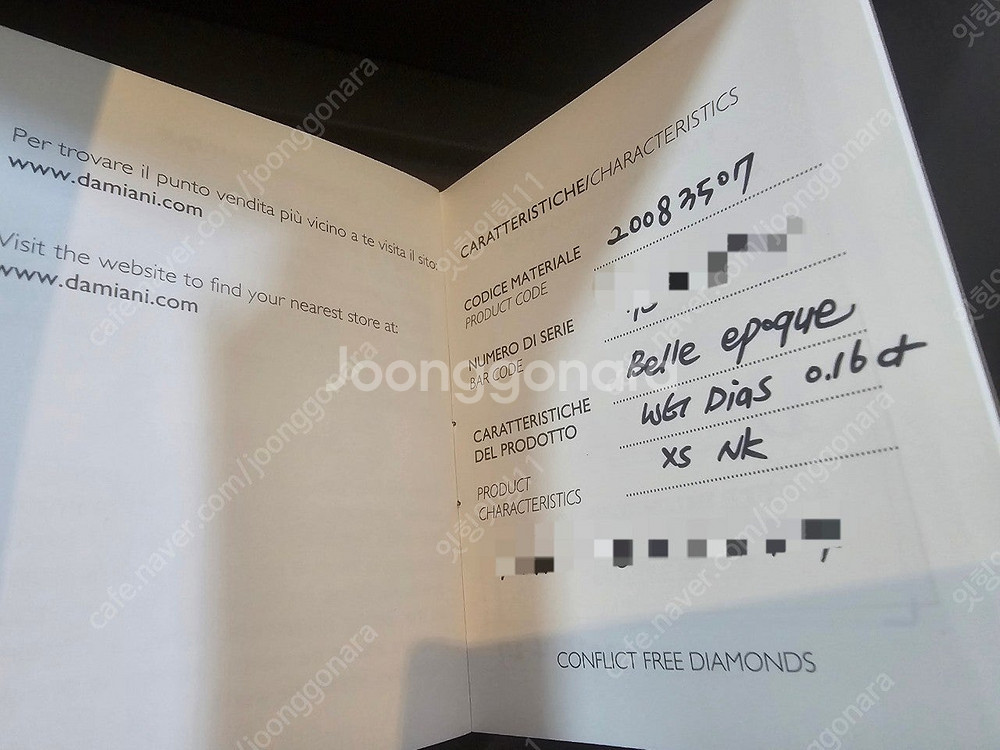 Per trovare il punto vendita più vicino a te visita il sito:
www.damiani.com
Visit the website to find your nearest store at:
www.damiani.com
CARATTERISTICHE/CHARACTERISTICS
CODICE MATERIALE 20083507
PRODUCT CODE
NUMERO DI SERIE
BAR CODE
CARATTERISTICHE Belle epoque
DEL PRODOTTO WG Dias 0.16 ct
PRODUCT XS NK
CHARACTERISTICS
CONFLICT FREE DIAMONDS
Joonggonara
cafe.naver.com/joonggonara
cafe.naver.com/joonggonara
cafe.naver.com/joonggonara
cafe.naver.com/joonggonara